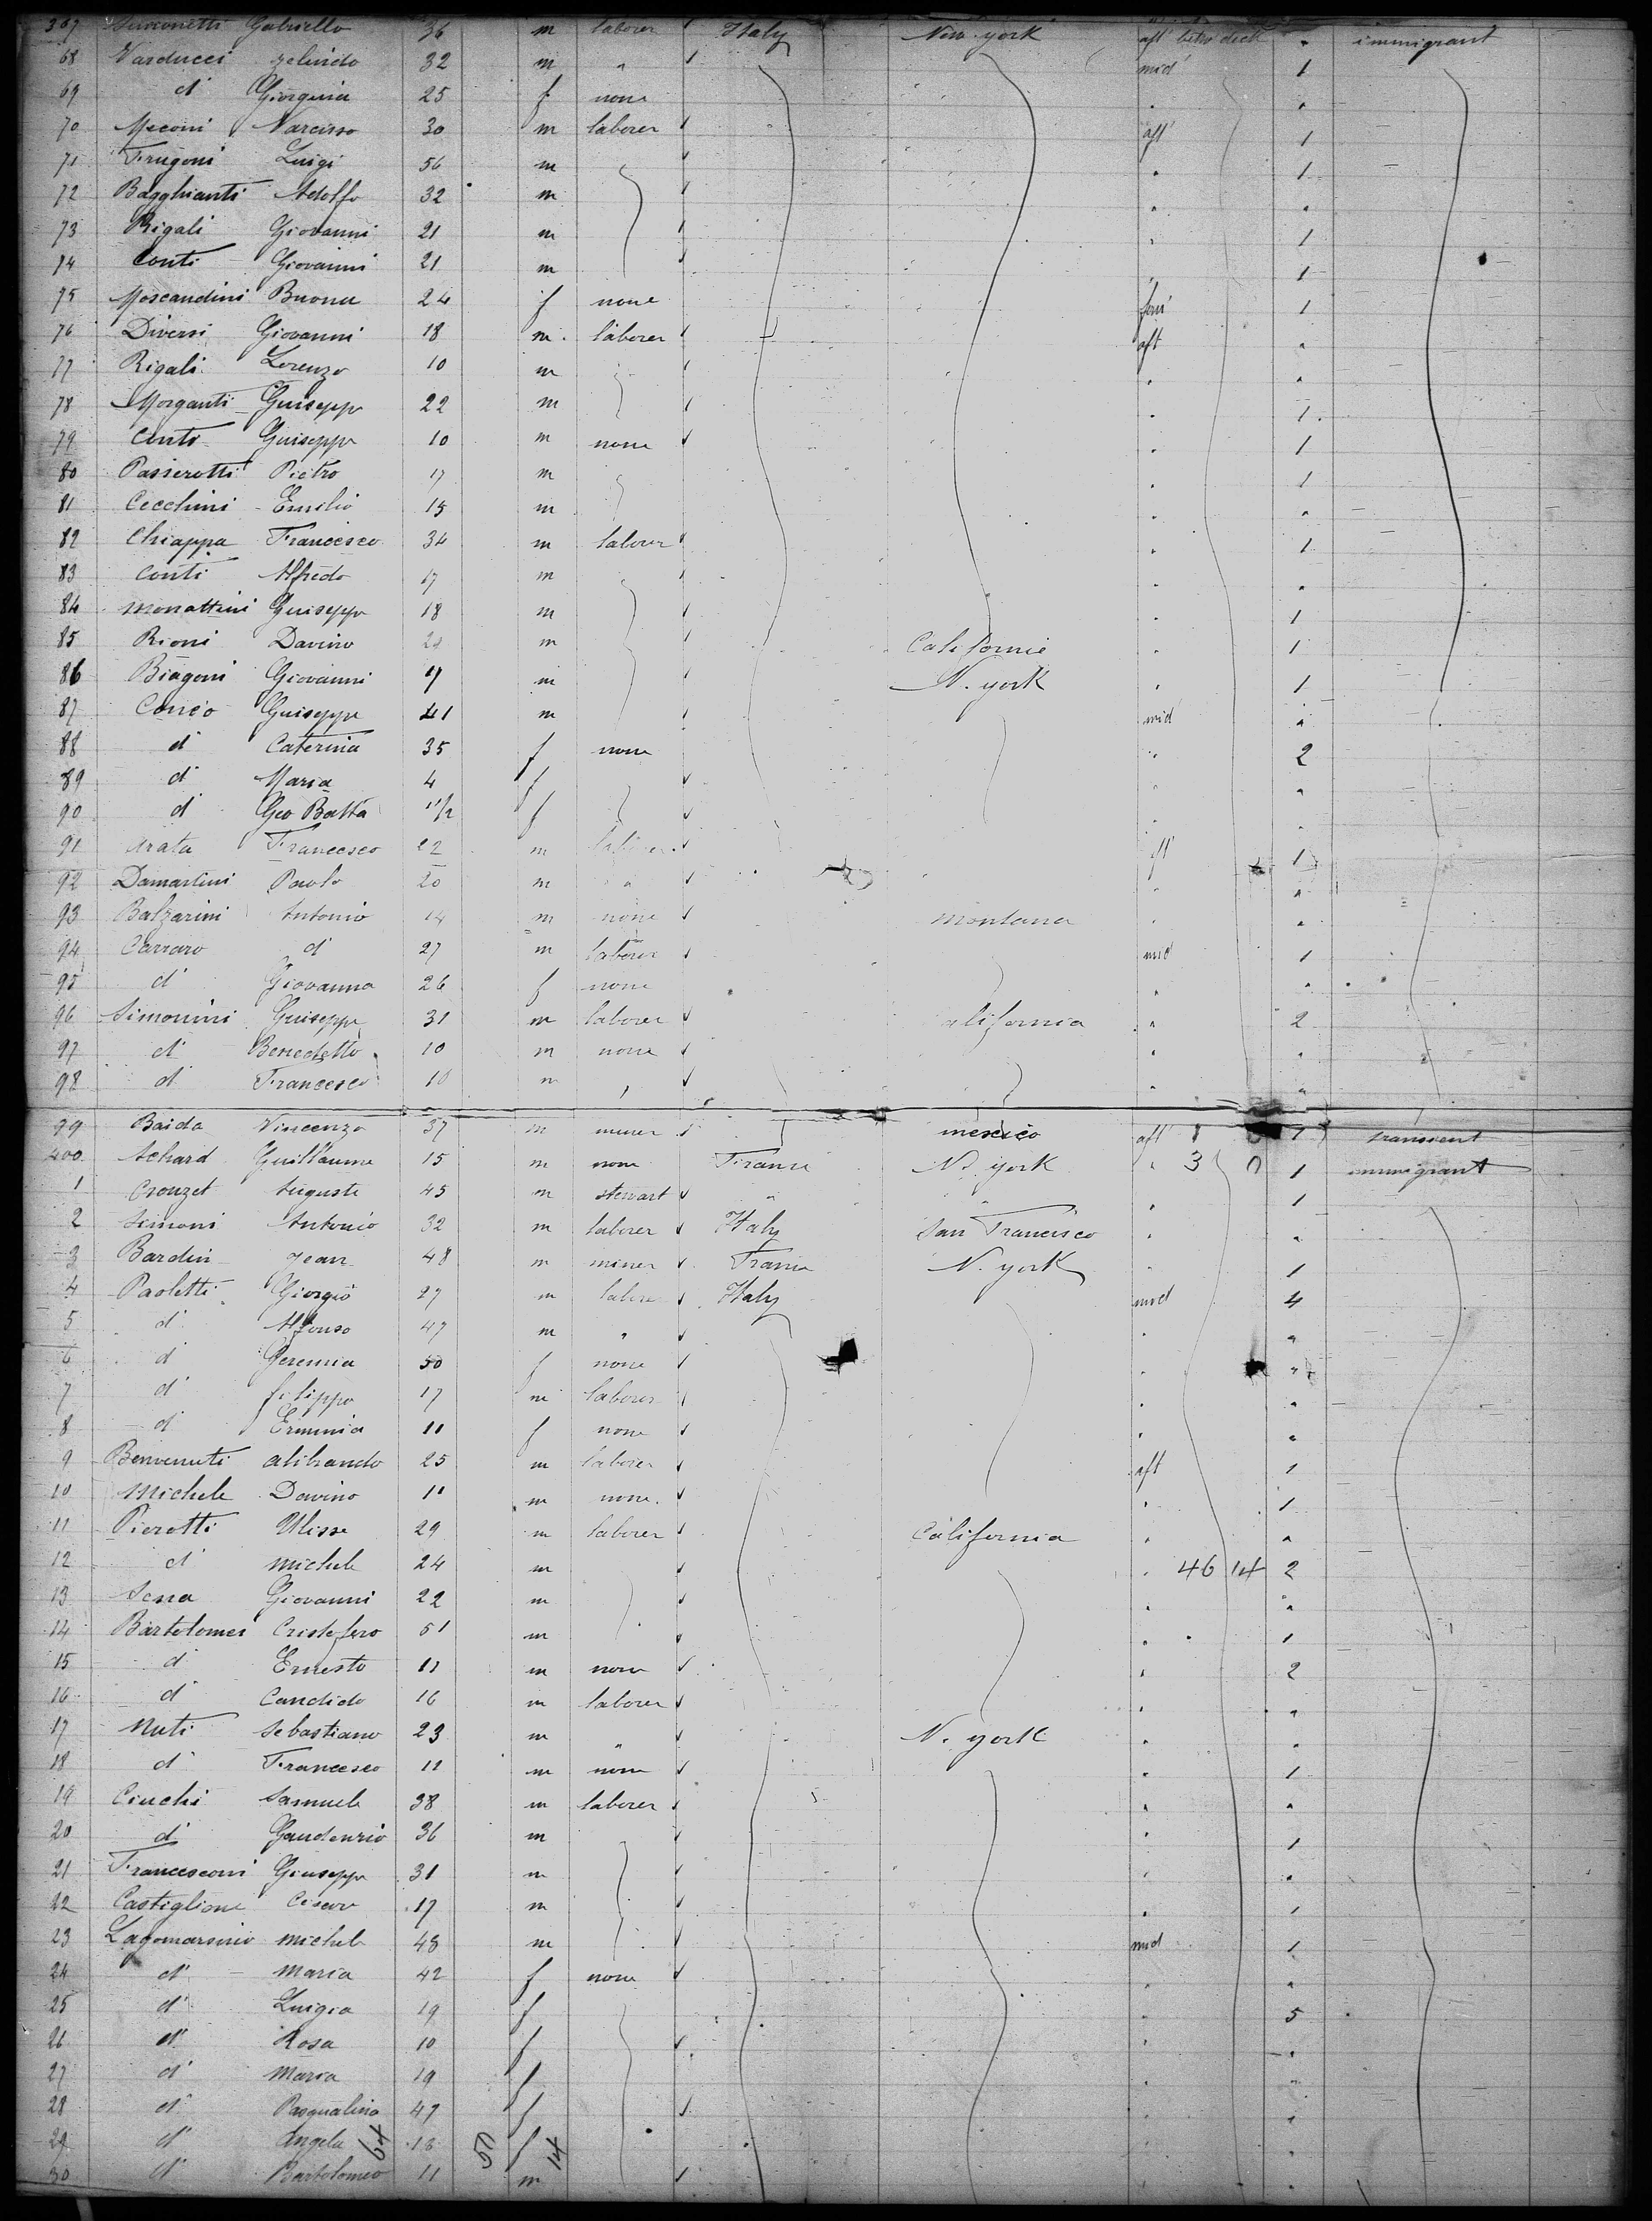 367 Simonetti Gabriello 36 m laborer Italy New york aft betw deck " immigrant
68 Varducci Zelindo 32 m " mid 1
69 d' Giorgina 25 f none " "
70 Meconi Narcisso 30 m laborer aft 1
71 Frugoni Luigi 56 m " 1
72 Bagghianti Adolfo 32 m " "
73 Rigali Giovanni 21 m " 1
74 Conti Giovanni 21 m " 1
75 Moscandini Buona 24 f none forw 1
76 Diversi Giovanni 18 m laborer aft "
77 Rigali Lorenzo 10 m " "
78 Morganti Guiseppe 22 m " 1
79 Conti Guiseppe 10 m none " 1
80 Passerotti Pietro 17 m " 1
81 Cecchini Emilio 15 m " "
82 Chiappa Francesco 34 m laborer " 1
83 Conti Alfredo 17 m " "
84 Monattini Guiseppe 18 m " 1
85 Rioni Davino m Californie " 1
86 Biagoni Giovanni 17 m N. york " 1
87 Guiseppe 41 m mid "
88 d' Caterina 35 f none " 2
89 d' Maria 4 f " "
90 d' Gio Batta 1 1/2 f " "
91 Arata Francesco 22 m laborer aft 1
92 Damartini Paolo 20 m " " "
93 Balzarini Antonio 14 m none montana " "
94 Carraro d' 27 m laborer mid 1
95 d' Giovanna 26 f none " "
96 Simonini Guiseppe 31 m laborer california " 2
97 d' Benedetto 10 m none " "
98 d' Francesco 10 m " " "
99 Baida Vincenzo 37 m miner mexico aft 1 transient
400 Achard Guillaume 15 m none France N. york " 3 0 1 immigrant
1 Crouzet Auguste 45 m stewart " " " 1
2 Simoni Antonio 32 m laborer Italy San Francisco " "
3 Bardin Jean 48 m miner France N. york " 1
4 Paoletti Giorgio 27 m laborer Italy mid 4
5 d' Alfonso 47 m " " "
6 d' Geremia 50 f none " "
7 d' filippo 17 m laborer " "
8 d' Erminia 11 f none " "
9 Benvenuti alibrando 25 m laborer aft 1
10 Michele Davino 11 m none " 1
11 Pierotti Ulisse 29 m laborer California " "
12 d' michele 24 m " 46 14 2
13 Serra Giovanni 22 m " "
14 Bartolomei Cristofero 51 m " 1
15 d' Ernesto 11 m none " 2
16 d' Candido 16 m laborer " "
17 Nuti Sebastiano 23 m " N. york " "
18 d' Francesco 11 m none " 1
19 Ciuchi Samuele 38 m laborer " "
20 d' Gaudenzio 36 m " 1
21 Francesconi Giuseppe 31 m " "
22 Castiglione Cisare 17 m " 1
23 Lagomarsino michele 48 m mid 1
24 d' Maria 42 f none " "
25 d' Luigia 19 f " 5
26 d' Rosa 10 f " "
27 d' Maria 19 f " "
28 d' Pasqualina 47 f " "
29 d' Angela 64 18 50 f 14 " "
30 d' Bartolomeo 11 m " "